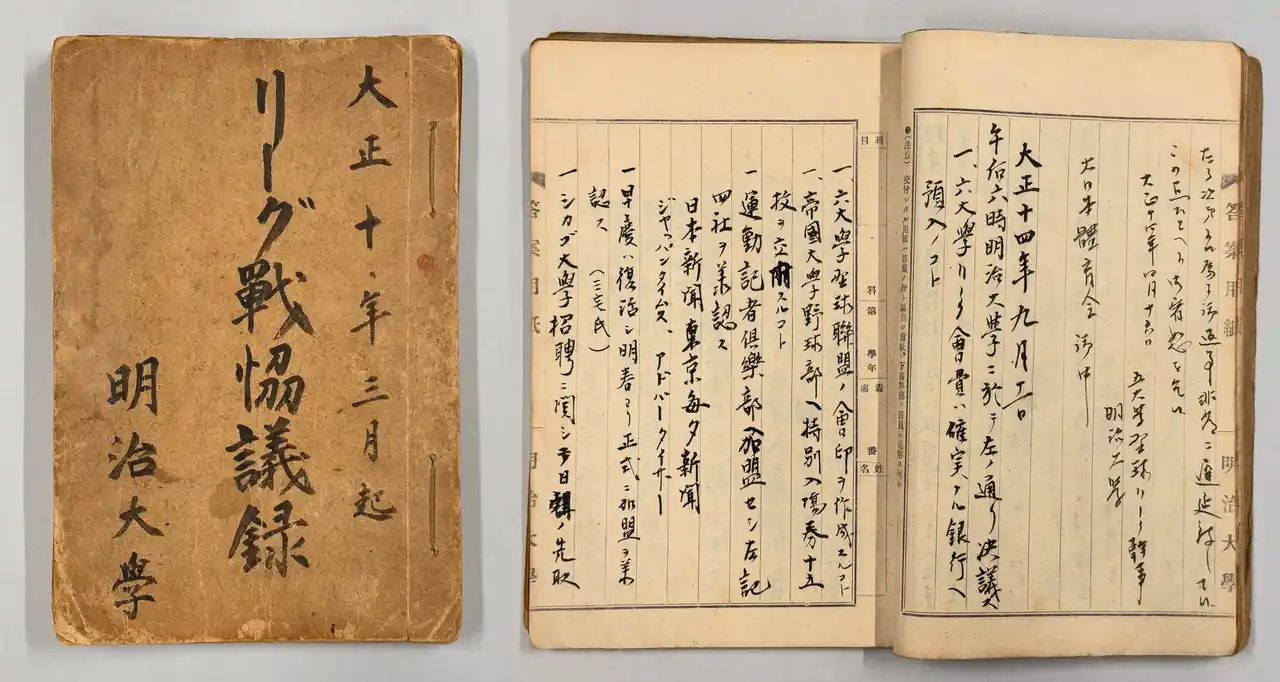 大正十年三月起
リーグ戰協議録
明治大學
この点あしからず御宥恕を乞ふ
大正十四年四月十六日
五大學野球リーグ幹事
明治大學
大日本體育会 御中
大正十四年九月十一日
午后六時明治大學ニ於テ左ノ通リ決議ス
一、六大學リーグ會費ハ確実ナル銀行ヘ
預入ノコト
答案用紙
明治大學
科目
科第 學年
着席 番
姓名
一、六大學野球聯盟ノ會印ヲ作成スルコト
一、帝國大學野球部ヘ特別入場券十五
枚ヲ交附スルコト
一 運動記者倶樂部ヘ加盟セシ左記
四社ヲ承認ス
日本新聞 東京毎夕新聞
ジャパンタイムス、アドバータイザー
一 早慶ハ復活シ明春ヨリ正式ニ加盟ヲ承
認ス (三宅氏)
一 シカゴ大學招聘ニ関シテ日ノ先取
答案用紙
明治大學